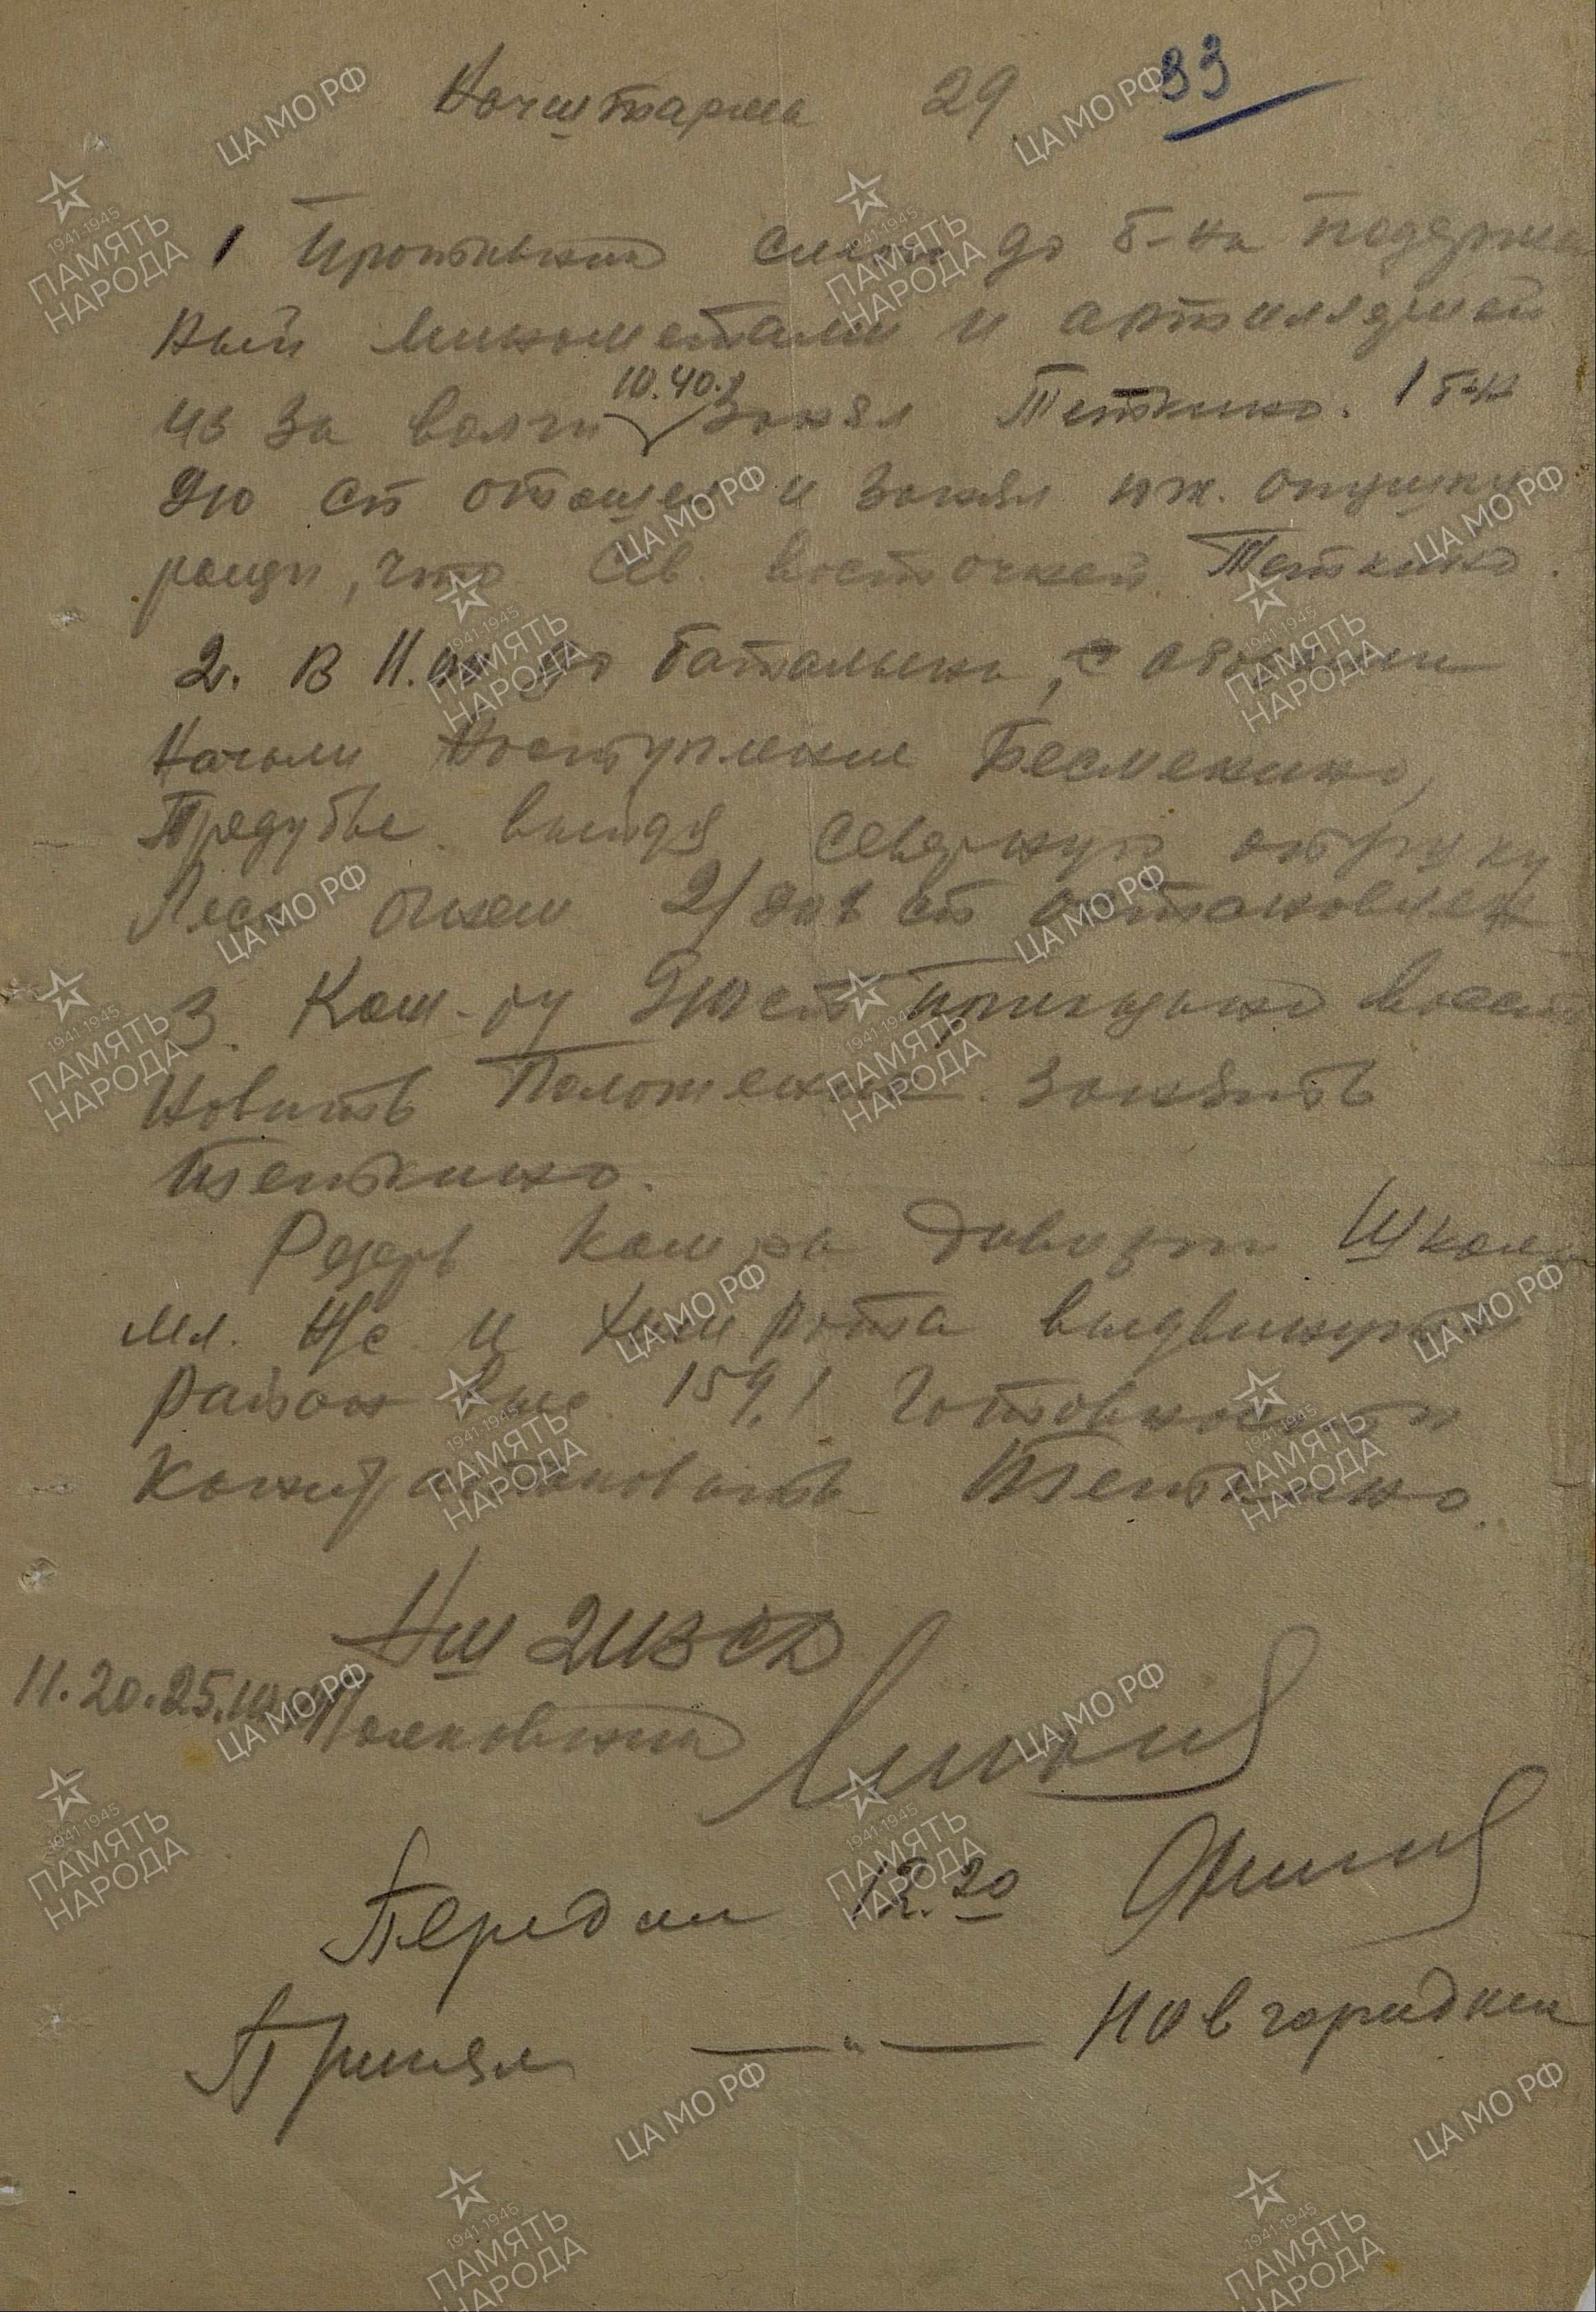 Начштарма 29
33
1 Противник силою до б-на поддержан
ный минометами и артилерией
10.40.
из за волги занял Теткино. 1 б-н
910 сп отошел и занял юж. опушку
рощи, что сев. восточней Теткино.
2. В 11.00 до баталиона,
начали наступление Бесменино,
Предубье выйдя северную опушку
леса огнем 2/908 сп остановлен
3. Ком-ру 910 сп приказано восст
новить положение занять
Теткино.
Резерв ком-ра дивизии Школа
мл. н/с и хим рота выдвинута
район выс. 159,1 готовности
контратаковать Теткино.
НШ 246 СД
11.20.25.10.41
Передал 12.20
Принял —〃— Новгородний
ЦА МО РФ
1941-1945
ПАМЯТЬ
НАРОДА